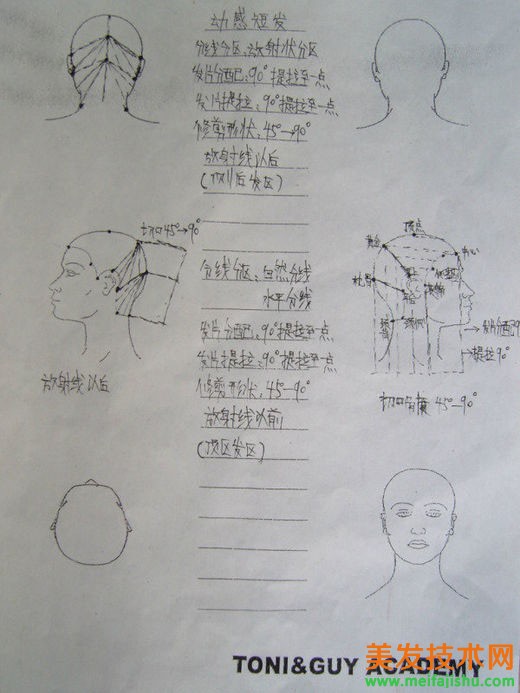 动感短发
分线分区:放射状分区
发片分配:90°提拉至一点
发片提拉:90°提拉至一点
修剪形状:45°→90°
放射线以后
(顶川后发区)
切口45°→90°
放射线以后
分线分区:自然分线
水平分线
发片分配:90°提拉至一点
发片提拉:90°提拉至一点
修剪形状:45-90°
放射线以前
(顶区发区)
顶点
黄金
中心
枕骨
发片分配
提拉90°
切口角度45-90°
TONI&GUY ACADEMY
美发技术网
www.meifajishu.com